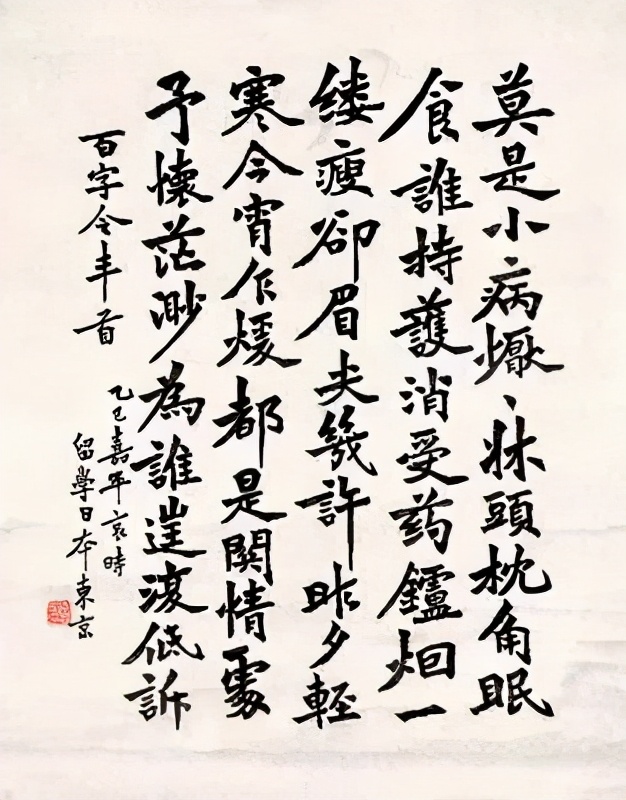 莫是小病懨〻牀頭枕角眠
食誰持護消受药鑪烟一
缕瘦卻眉尖幾許昨夕輕
寒今宵乍煖都是關情處
予懷茫渺為誰復低訴
百字令半首
乙巳嘉平哀時
留學日本東京